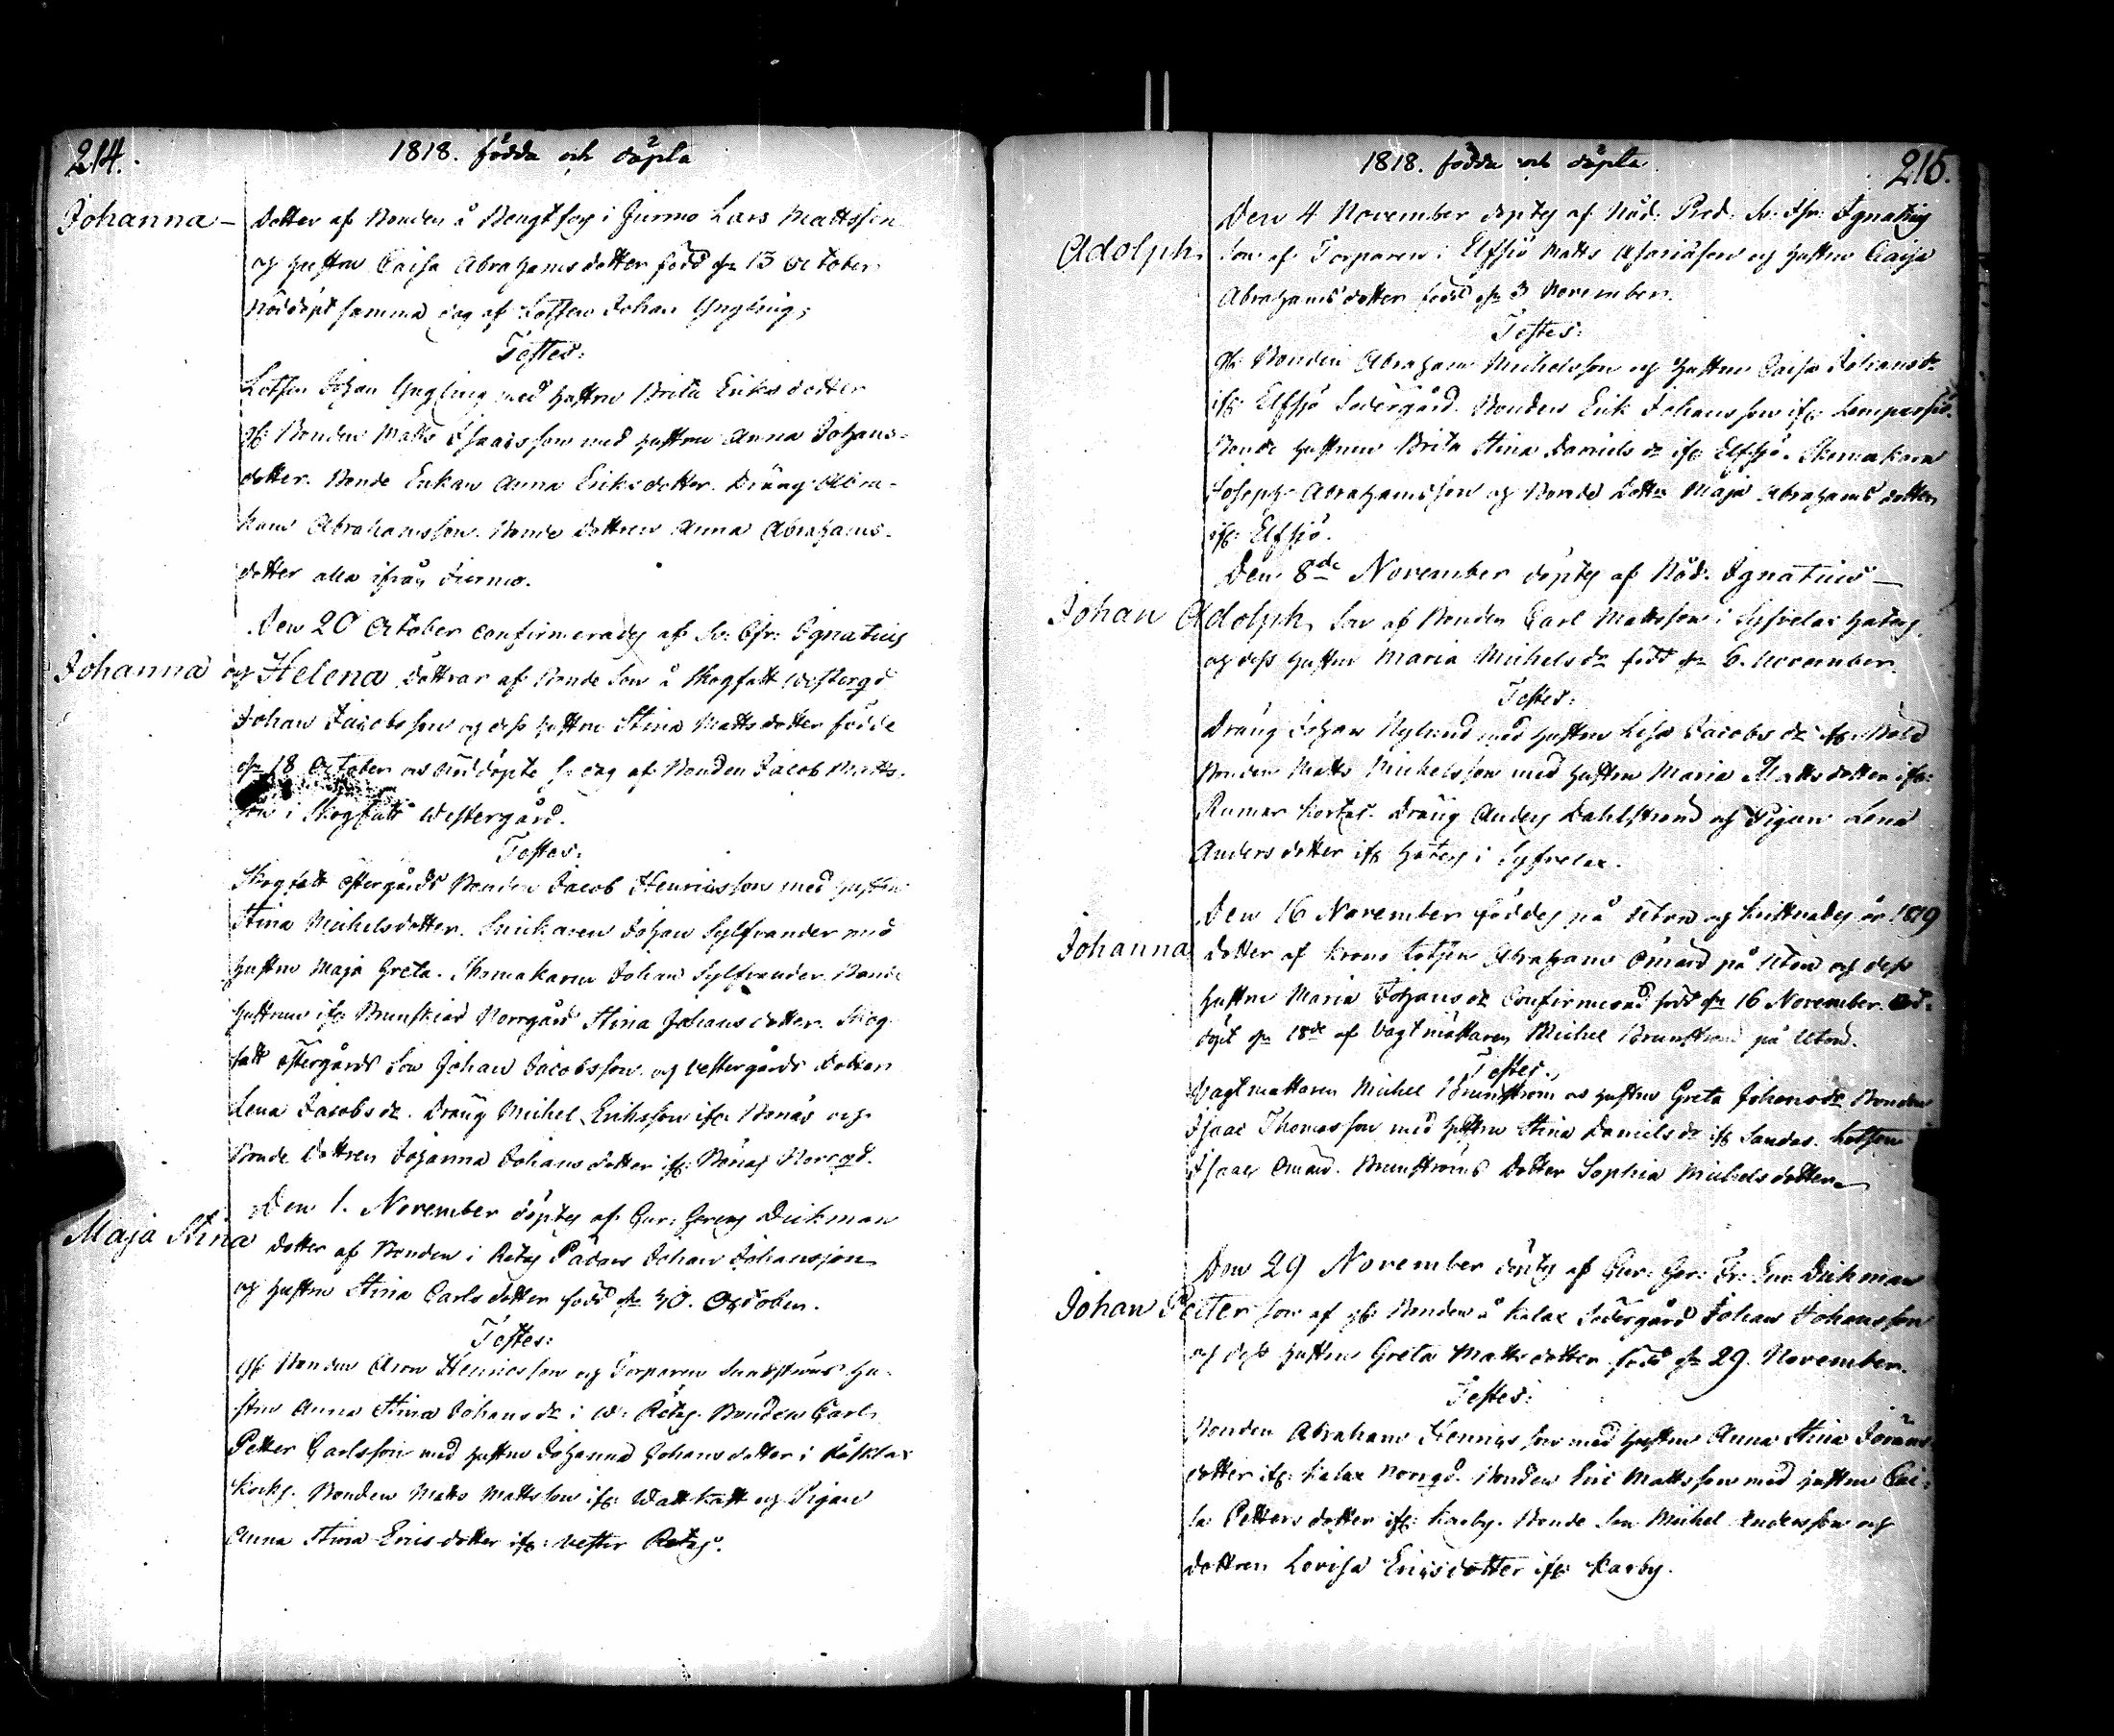 214.
1818. födda och döpta
Johanna – Dotter af Bonden å Bengtsby i Jurmo Lars Mattsson
og hustru Caisa Abrahamsdotter född dn 13 October
nöddöpt samma dag af Lotsen Johan Yngling;
Testes:
Lotsen Johan Yngling med hustru Brita Eriks dotter
gf: Bonden Matts Isaacsson med hustru Anna Johans-
dotter. Bonde Enkan Anna Eriksdotter. Dräng Abra-
ham Abrahamsson. Bonde dottren Anna Abrahams-
dotter alla ifrån Jurmo.
Den 20 October confirmerades af Sv: Ignatius
Johanna og Helena Döttrar af Bonde Son å Skogsatt Westergd
Johan Jacobsson og dess hustru Stina Mattsdotter födde
dn 18 October nöddöpte s. dag af Bonden Jacob Matts-
son i Skogsatt Westergård.
Testes:
Skogsatt Östergårds Bonden Jacob Henricsson med hustru
Stina Michelsdotter. Snickaren Johan Sylfvander med
hustru Maja Greta. Skomakaren Johan Sylfvander. Bonde
hustrun ifr: Brunskiär Norrgård Stina Johansdotter. Skog-
satt Östergårds Son Johan Jacobsson og Vestergårds Dotter
Lena Jacobs dr. Dräng Michel Ericksson ifr. Benäs og
Bonde Dottren Johanna Johansdotter ifr: Norrgd.
Den 1. November döptes af Dickman
Maja Stina Dotter af Bonden i Retais Johan Johansson
og hustru Stina Carlsdotter född dn 30. October.
Testes:
gf: Bonden Aron Henricsson og Torparen hu-
stru Anna Stina Johans dr i W: Bonden Carl
Petter Carlsson med hustru Johanna Johansdotter i
Bonden Matts Mattsson ifr: Wattkast og Pigan
Anna Stina Ericsdotter ifr: Vester
215.
1818. födda och döpta.
Den 4 November döptes af Nåd: Pred: Sv: Ignatius
Adolph Son af Torparen i Elfsjö Matts Asariasson og hustru Caisa
Abrahamsdotter född dn 3 November.
Testes:
gf: Bonden Abraham Michelsson og hustru Caisa Johansdr
ifr: Elfsjö Södergård. Bonden Erik Johansson ifr: Lempersjö.
Bonde hustrun Brita Stina Daniels dr ifr: Elfsjö. Skomakaren
Joseph Abrahamsson og Bonde Dottr Maja Abrahamsdotter
ifr: Elfsjö.
Den 8de November döptes af Nåd: Ignatius
Johan Adolph Son af Bonden Carl Mattsson i Syfvelax
og dess hustru Maria Michels dr född dn 6. November.
Testes:
Dräng Johan Nylund med hustru Lisa Jacobs dr ifr:
Bonden Matts Michelsson med hustru Maria Mattsdotter ifr:
Rumar Dräng Anders Dahlström og Pigan Lena
Andersdotter ifr: i Syfvelax.
Den 16 November föddes på Utön og år 1819
Johanna Dotter af Krono Lotsen Abraham Öman på Utön og dess
hustru Maria Johans dr Confirmerad född dn 16 November. Nöd-
döpt dn 18de af Vagtmästaren Michel Brunström på Utön.
Testes.
Vagtmästaren Michel Brunström og hustru Greta Johansdr Bonden
Isaac Thomasson med hustru Stina Daniels dr ifr: Sandas. Lotsen
Isaac Öman. Brunströms Dotter Sophia Michelsdotter
Den 29 November döptes af Dickman
Johan Peter Son af gf: Bonden å Kalax Södergård Johan Johansson
og dess hustru Greta Mattsdotter född dn 29. November.
Testes:
Bonden Abraham Henricsson med hustru Anna Stina Jöräns-
dotter ifr: Kalax Norrgd. Bonden Eric Mattsson med hustru Cai-
sa Pettersdotter ifr: Karby. Bonde Son Michel Andersson og
dottren Lovisa Ericsdotter ifr: Karby.